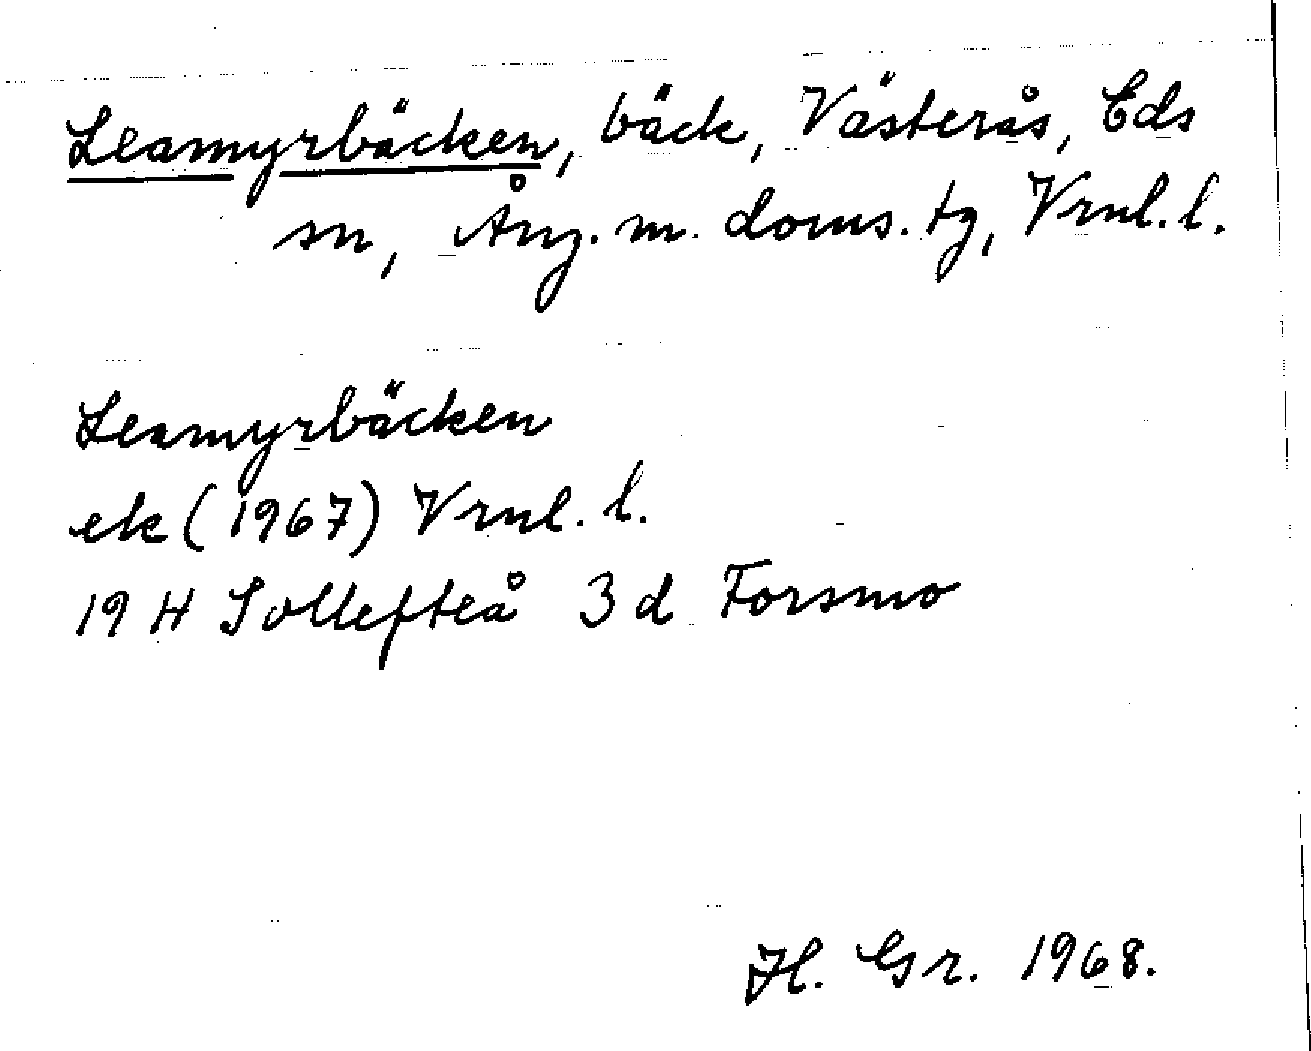 Leamyrbäcken, bäck, Västerås, Eds
sn, Ång. m. doms. tg, Vrnl. l.
Leamyrbäcken
ek (1967) Vrnl. l.
19 H Sollefteå 3 d Forsmo
H. Gr. 1968.